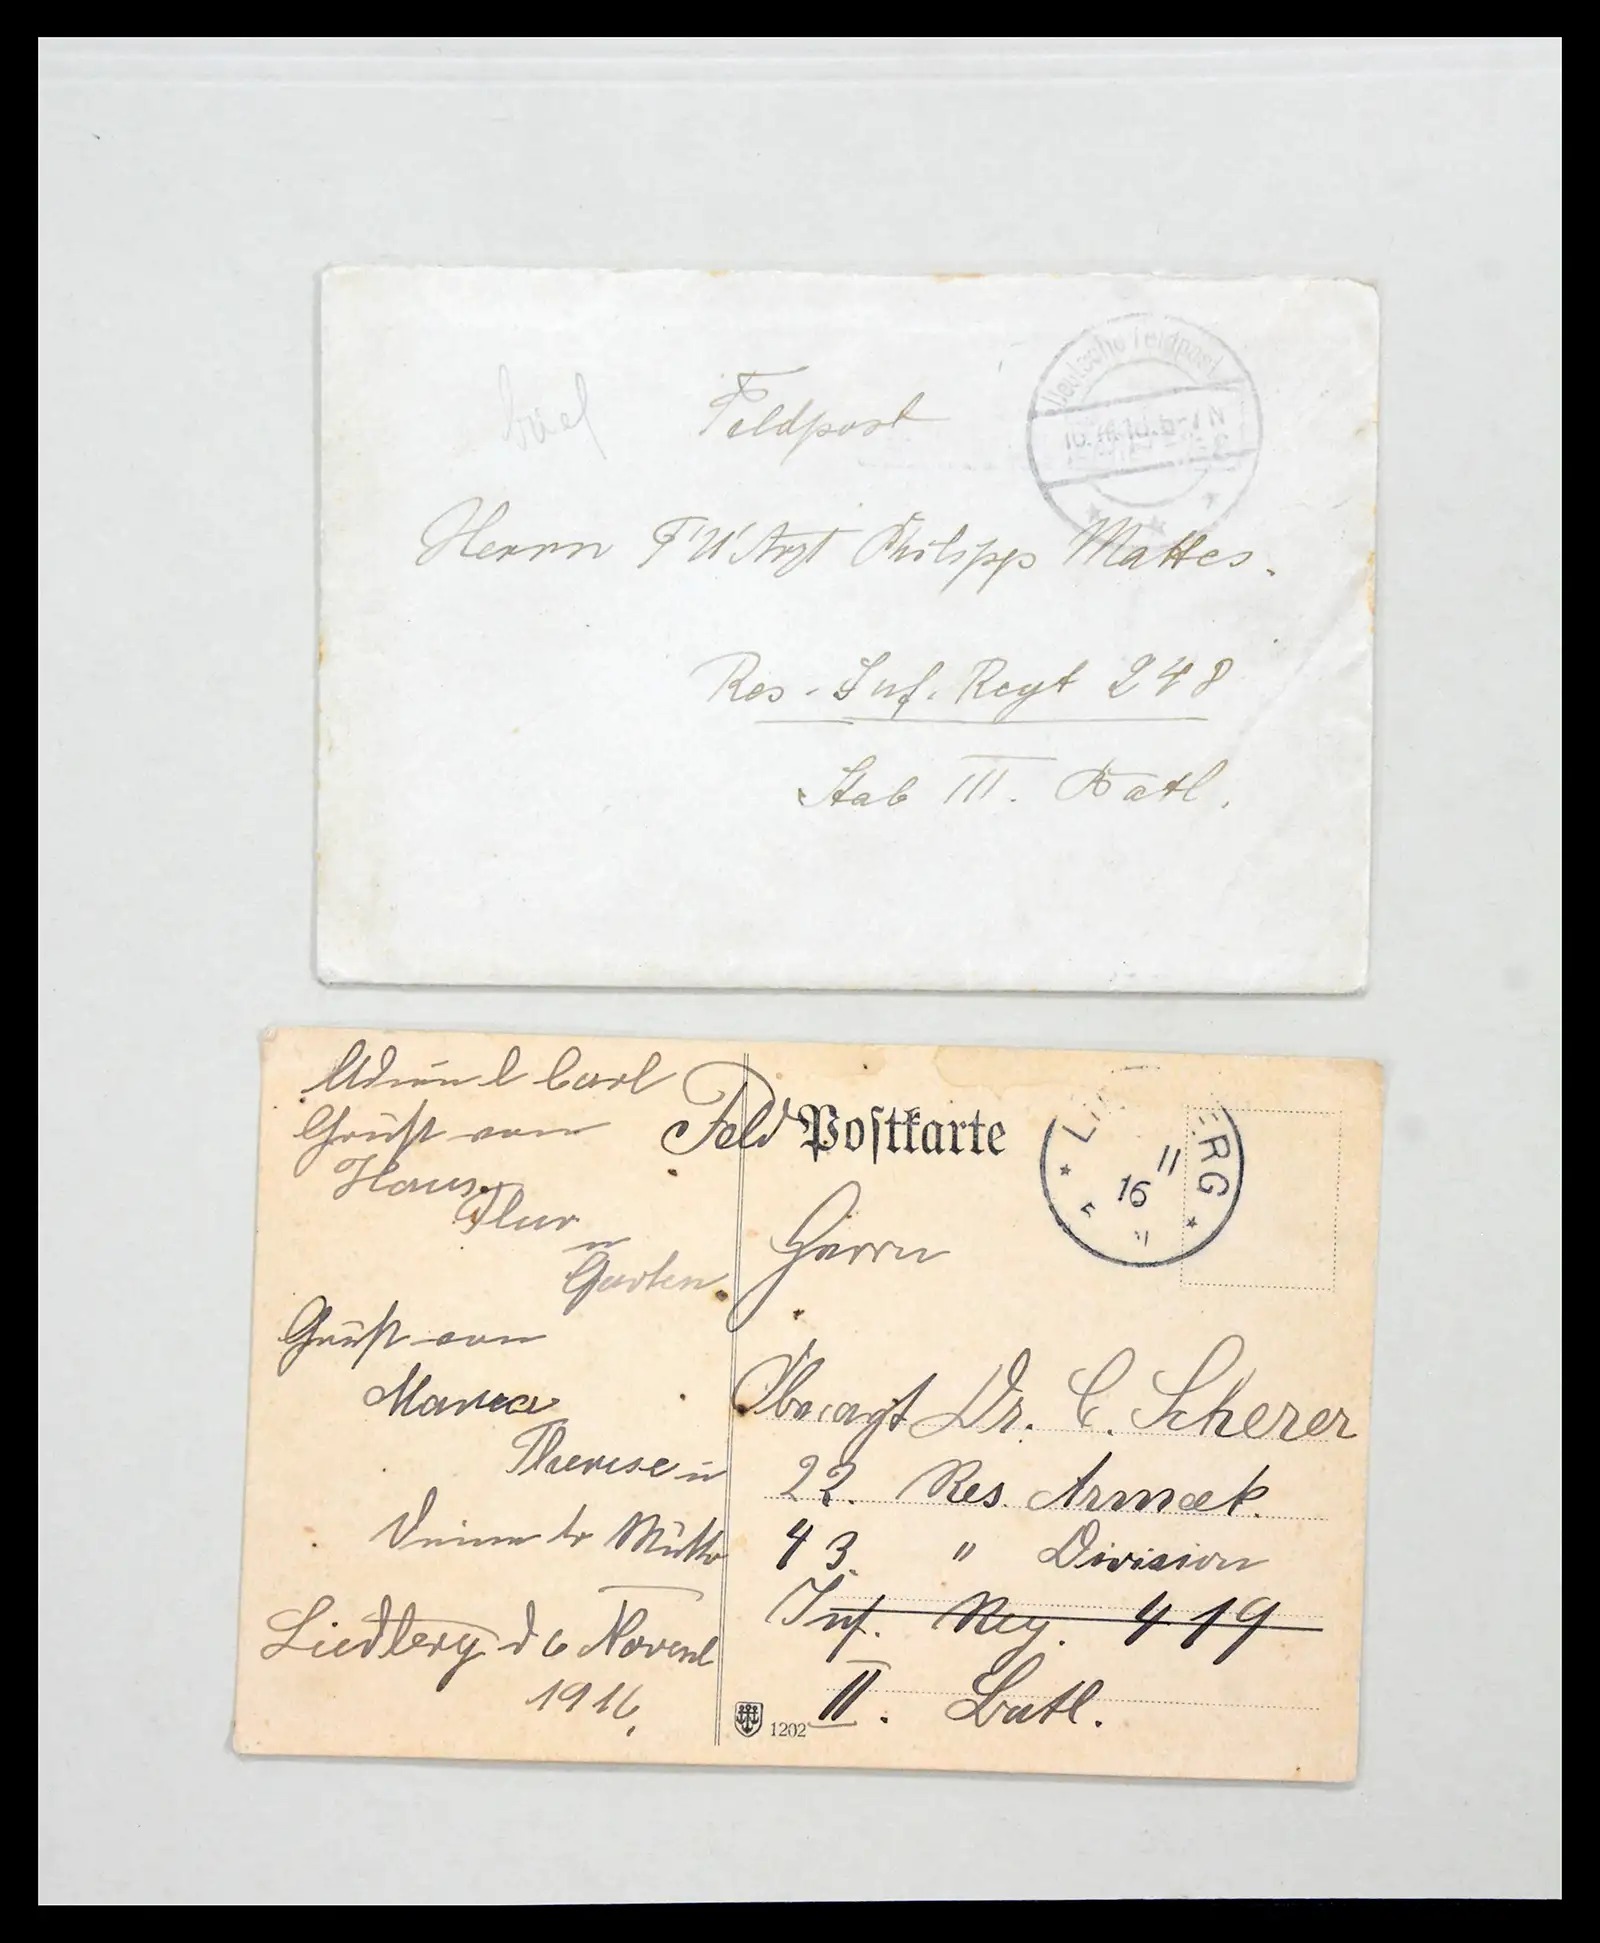 Feldpost
Deutsche Feldpost
Herrn F'U'Arzt Philipp Mattes.
Res. Inf. Regt 248
Stab III. Batl.
Carl
Grüße vom
Haus
Flur
u
Garten.
Grüße von
Maria
Therese u
Deiner lb Mutter
Liedberg d 6 Novemb
1916.
Feld Postkarte
LI ERG
11
16
Herrn
Oberarzt Dr. C. Scherer
22. Res. Armeek.
43. " Division
Inf. Reg. 419
II. Batl.
1202